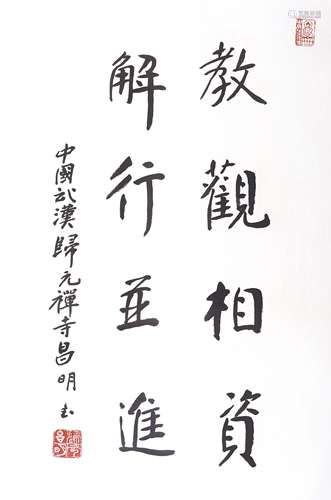 教觀相資
解行並進
中國武漢歸元禪寺昌明书